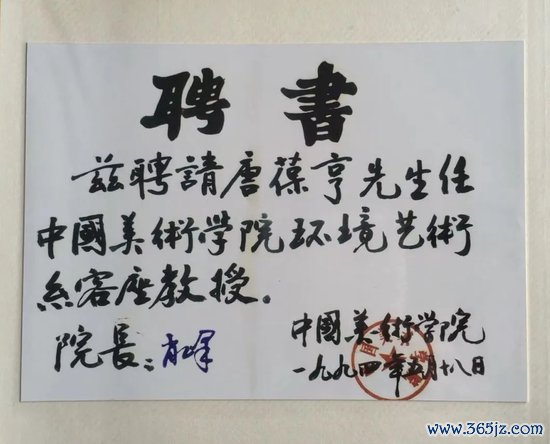 聘書
兹聘請唐葆亨先生任
中國美術学院环境艺術
系客座教授。
院長：肖峰
中國美術学院
一九九四年五月十八日
www.365jz.com